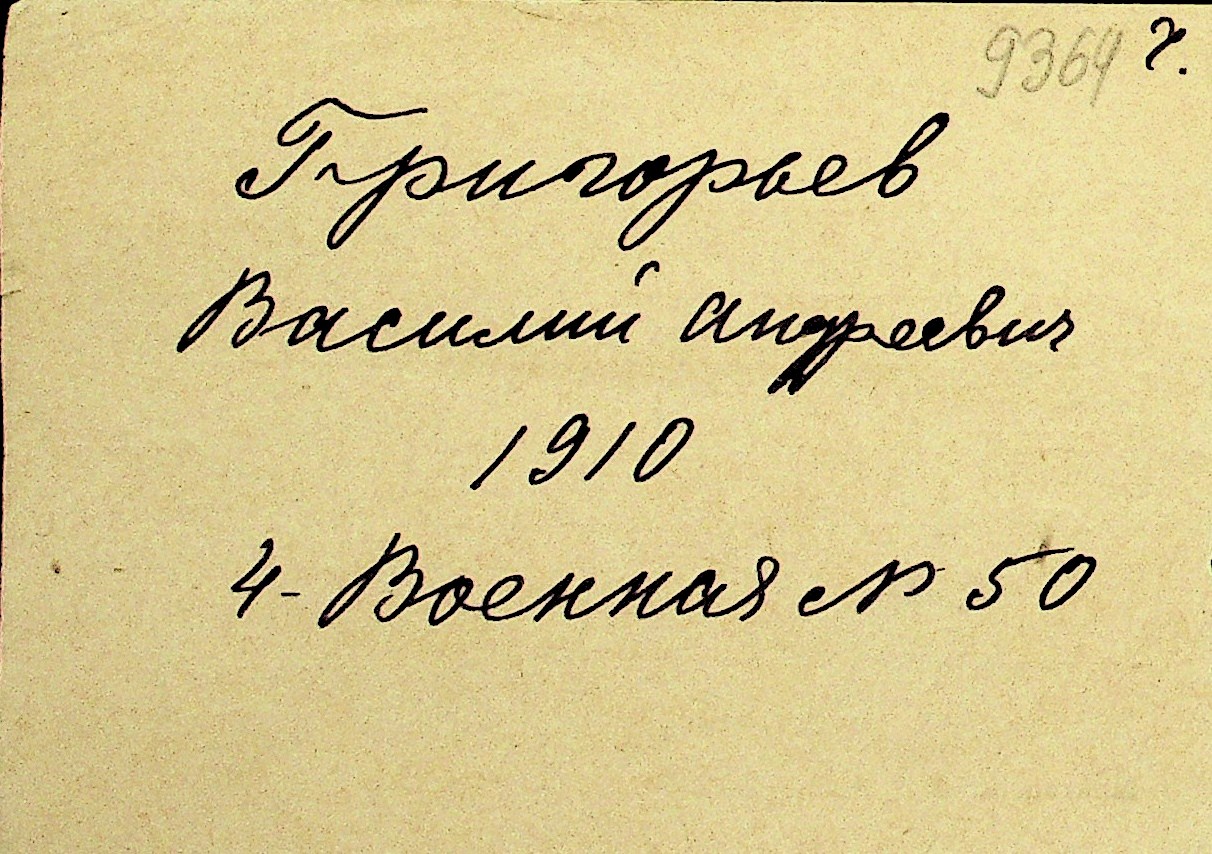 9364 г.
Григорьев
Василий Андреевич
1910
4-Военная № 50